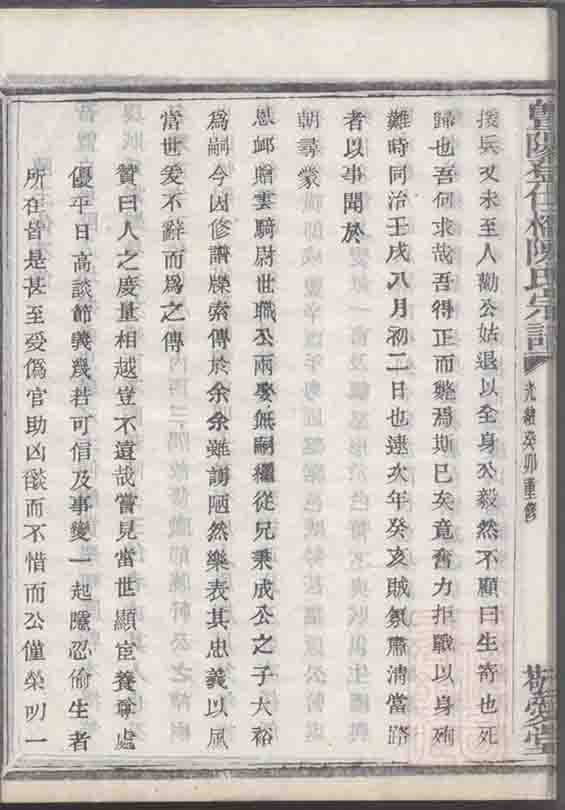 陳氏宗譜
光緒癸卯重修
敬愛堂
援兵又未至人勸公姑退以全身公毅然不顧曰生寄也死
歸也吾何求哉吾得正而斃焉斯已矣竟奮力拒戰以身殉
難時同治壬戌八月初二日也逮次年癸亥賊氛肅清當路
者以事聞於
朝尋蒙
恩卹贈雲騎尉世職公兩娶無嗣繼從兄秉成公之子大裕
為嗣今因修譜牒索傳於余余雖謭陋然樂表其忠義以風
當世爰不辭而為之傳
贊曰人之度量相越豈不遠哉嘗見當世顯宦養尊處
優平日高談節義幾若可信及事變一起隱忍偷生者
所在皆是甚至受偽官助凶燄而不惜而公僅榮叨一